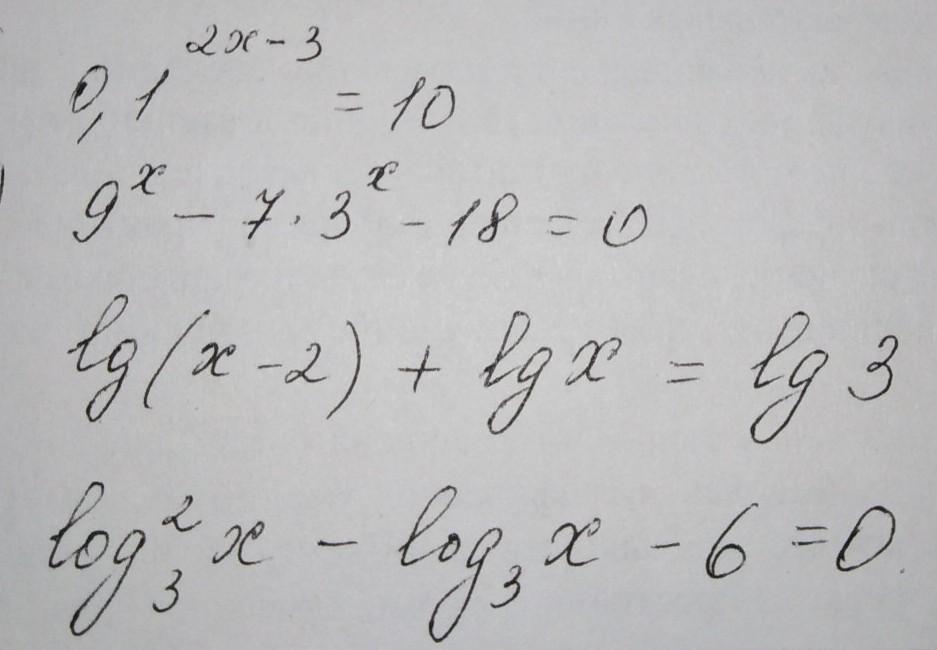 0,1^{2x-3} = 10
9^x - 7·3^x - 18 = 0
lg(x-2) + lg x = lg 3
log_3^2 x - log_3 x - 6 = 0